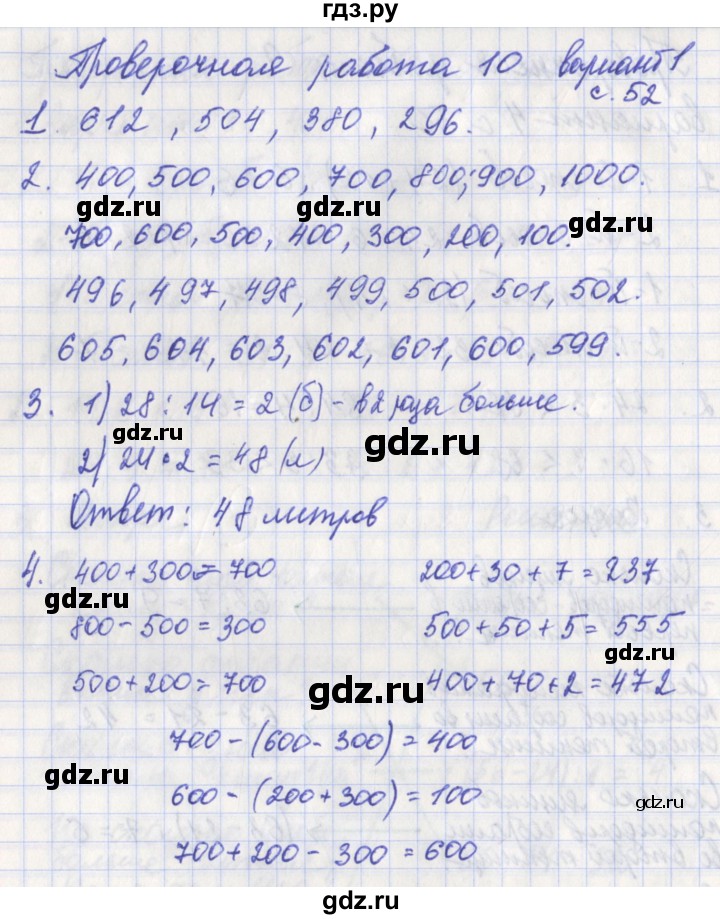 гдз.ру
Проверочная работа 10 вариант 1
с. 52
1. 612, 504, 380, 296.
2. 400, 500, 600, 700, 800, 900, 1000.
gdz.ru gdz.ru gdz.ru
700, 600, 500, 400, 300, 200, 100.
496, 497, 498, 499, 500, 501, 502.
605, 604, 603, 602, 601, 600, 599.
3. 1) 28 : 14 = 2 (б) - в 2 раза больше.
gdz.ru
2) 24 · 2 = 48 (л)
Ответ: 48 литров
4. 400 + 300 = 700 200 + 30 + 7 = 237
gdz.ru
800 - 500 = 300 500 + 50 + 5 = 555
gdz.ru
500 + 200 = 700 400 + 70 + 2 = 472
gdz.ru
700 - (600 - 300) = 400
gdz.ru
600 - (200 + 300) = 100
gdz.ru
700 + 200 - 300 = 600
gdz.ru gdz.ru